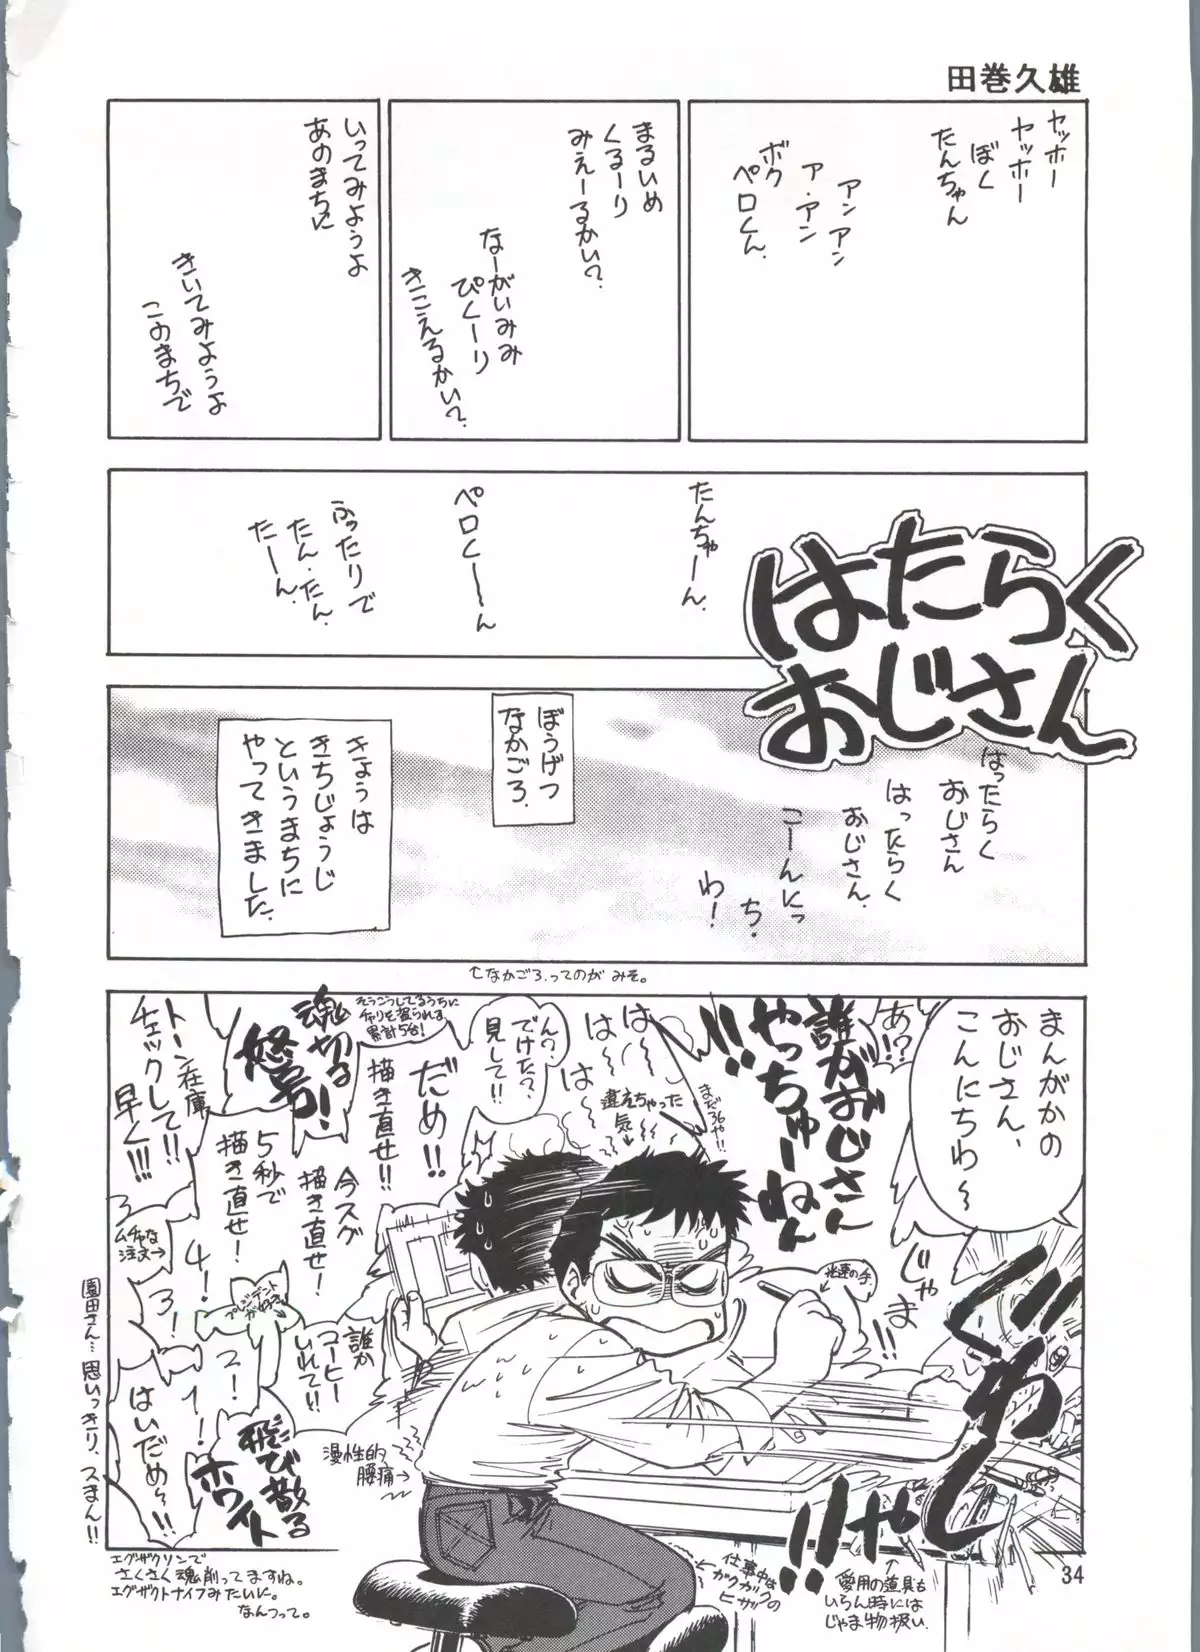 田巻久雄
ヤッホー
ヤッホー
ぼく
たんちゃん
アンアン
ア・アン
ボク
ペロくん.
まるいめ
くるーり
みえーるかい?
なーがいみみ
ぴくーり
きこえるかい?
いってみようよ
あのまちに
きいてみようよ
このまちで
たんちゃーん.
ペロくーん
ふったりで
たん・たん.
たーん.
はたらく
おじさん
はったらく
おじさん
はったらく
おじさん.
こーんにっ
ち.
わ!
ぼうげつ
なかごろ.
きょうは
きちじょうじ
というまちに
やってきました.
↑なかごろ.ってのが みそ。
まんがかの
おじさん、
こんにちわ〜
あ!?
誰がおじさん
やっちゅーねん
!!
まだ36や!!
はー
はー
はー
違えちゃった
気
ん?
でけた?
見して!!
そうこうしてるうちに
チャリを盗られる
累計5台!
だめ!!
描き直せ!!
今スグ
描き直せ!
5秒で
描き直せ!
魂切る
怒号!
トーン在庫
チェックして!!
早く!!!
ムチャな
注文→
5!
4!
3!
2!
1!
はいだめ〜!!
プレジデント
が好き
誰か
コーヒー
いれて!!
飛び散る
ホワイト
漫性的
腰痛→
光速の手.
じゃま
!!
ぐわし
じゃ!!
園田さん…思いっきり、スまん!!
エグザクリンで
さくさく魂削ってますね。
エグザクトナイフみたいに。
なんつって。
←仕事中は
ガクガクの
ヒザ
愛用の道具も
いらん時には
じゃま物扱い.
34